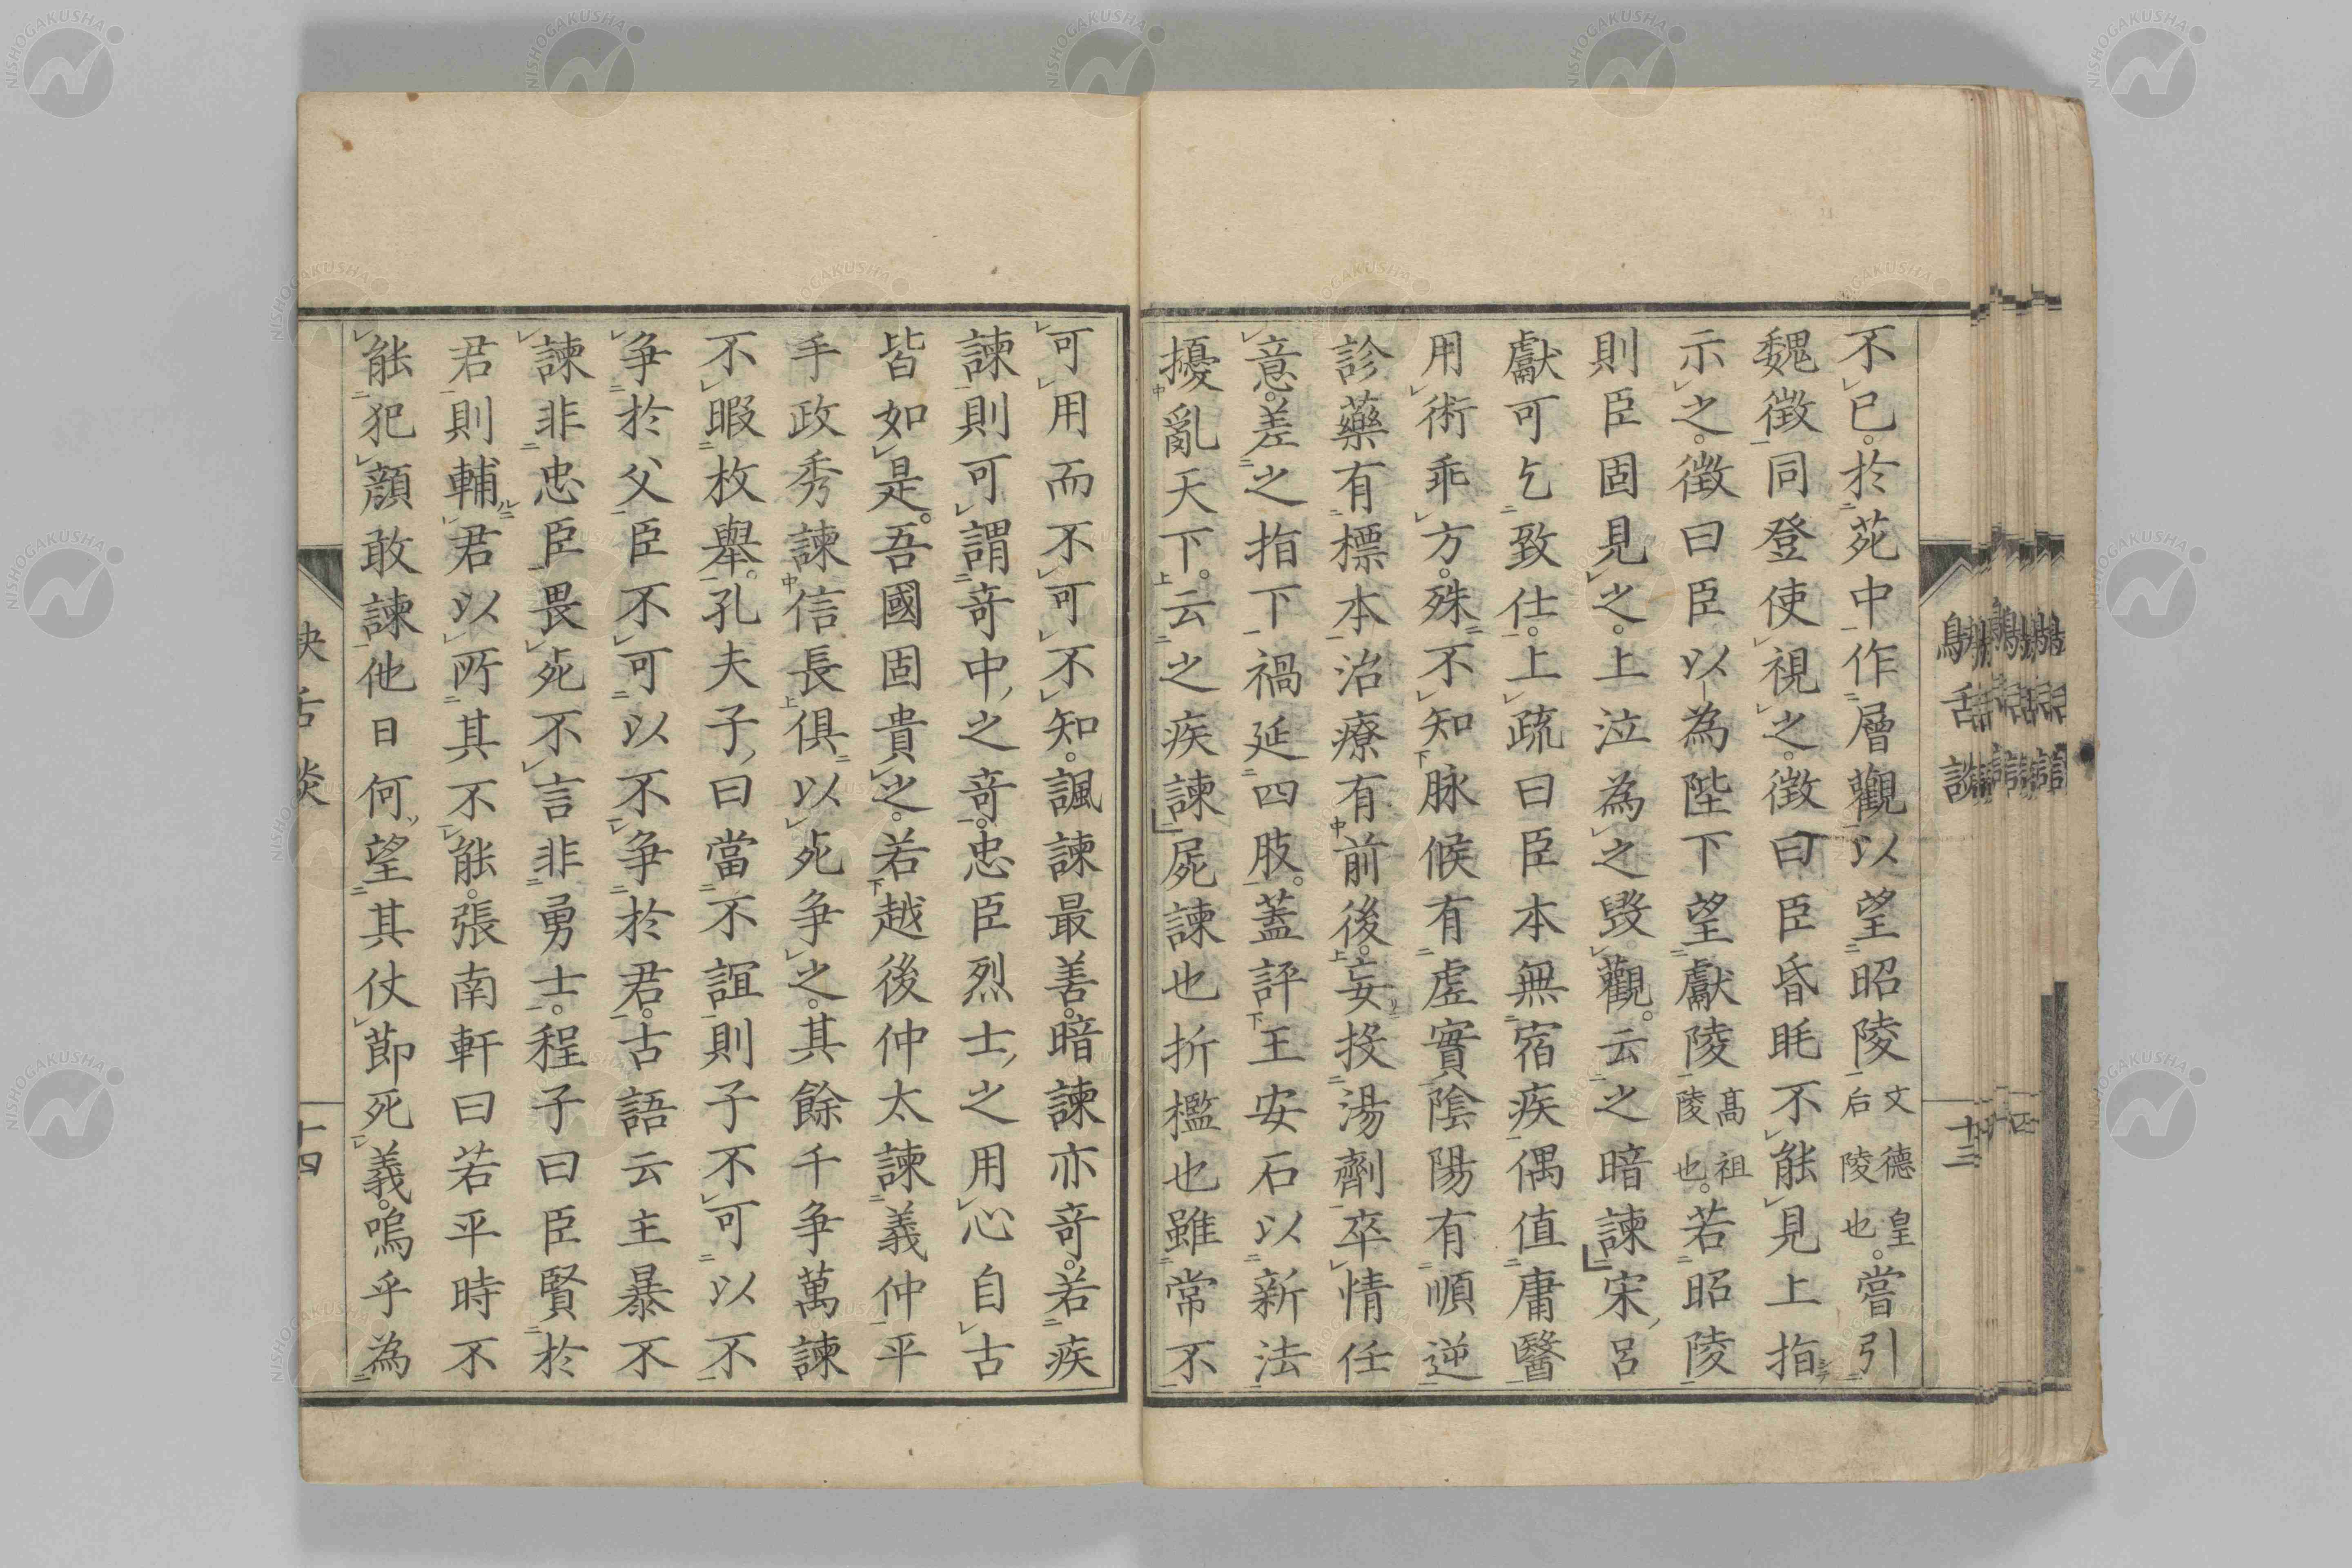 不已。於苑中作層觀以望昭陵文德皇后陵也。嘗引
魏徵同登使視之。徵曰臣昏眊不能見上指
示之。徵曰臣以為陛下望獻陵高祖陵也。若昭陵
則臣固見之。上泣為之毀觀。云之暗諫宋呂
獻可乞致仕。上疏曰臣本無宿疾偶值庸醫
用術乖方。殊不知脉候有虛實陰陽有順逆
診藥有標本治療有前後。妄投湯劑卒情任
意。差之指下禍延四肢。蓋評王安石以新法
擾亂天下。云之疾諫屍諫也折檻也雖常不
可用而不可不知。諷諫最善。暗諫亦奇。若疾
諫則可謂奇中之奇。忠臣烈士之用心自古
皆如是。吾國固貴之。若越後仲太諫義仲平
手政秀諫信長俱以死争之。其餘千争萬諫
不暇枚舉。孔夫子曰當不誼則子不可以不
争於父臣不可以不争於君。古語云主暴不
諫非忠臣畏死不言非勇士。程子曰臣賢於
君則輔君以所其不能。張南軒曰若平時不
能犯顔敢諫他日何望其仗節死義。嗚乎為
鴃舌談
十三
舌談
十四
NISHOGAKUSHA